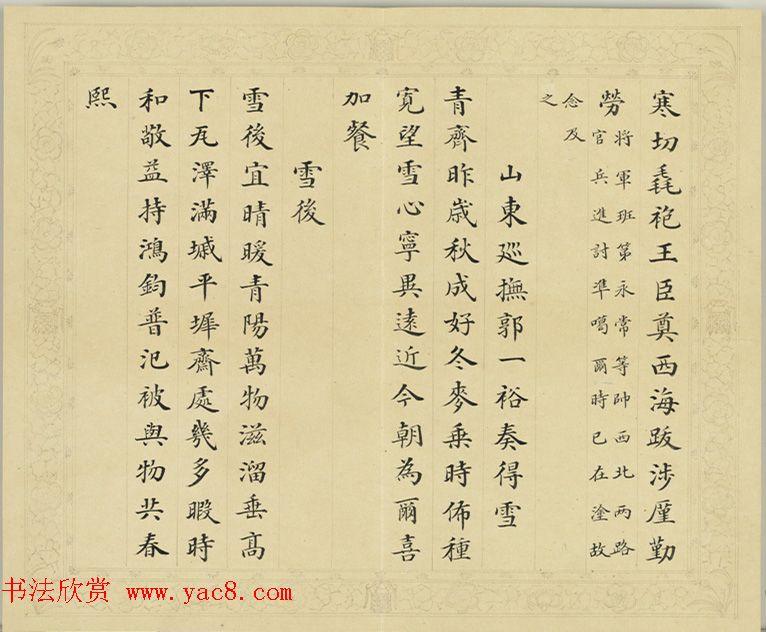 寒切毳袍王臣奠西海跋涉厪勤
勞
將軍班第永常等帥西北兩路
官兵進討準噶爾時已在塗故
念及
之
山東廵撫郭一裕奏得雪
青齊昨歲秋成好冬麥乗時佈種
寛望雪心寧異遠近今朝為爾喜
加餐
雪後
雪後宜晴暖青陽萬物滋溜垂髙
下瓦澤滿墄平墀齋處幾多暇時
和敬益持鴻鈞普氾被與物共春
熙
书法欣赏 www.yac8.com